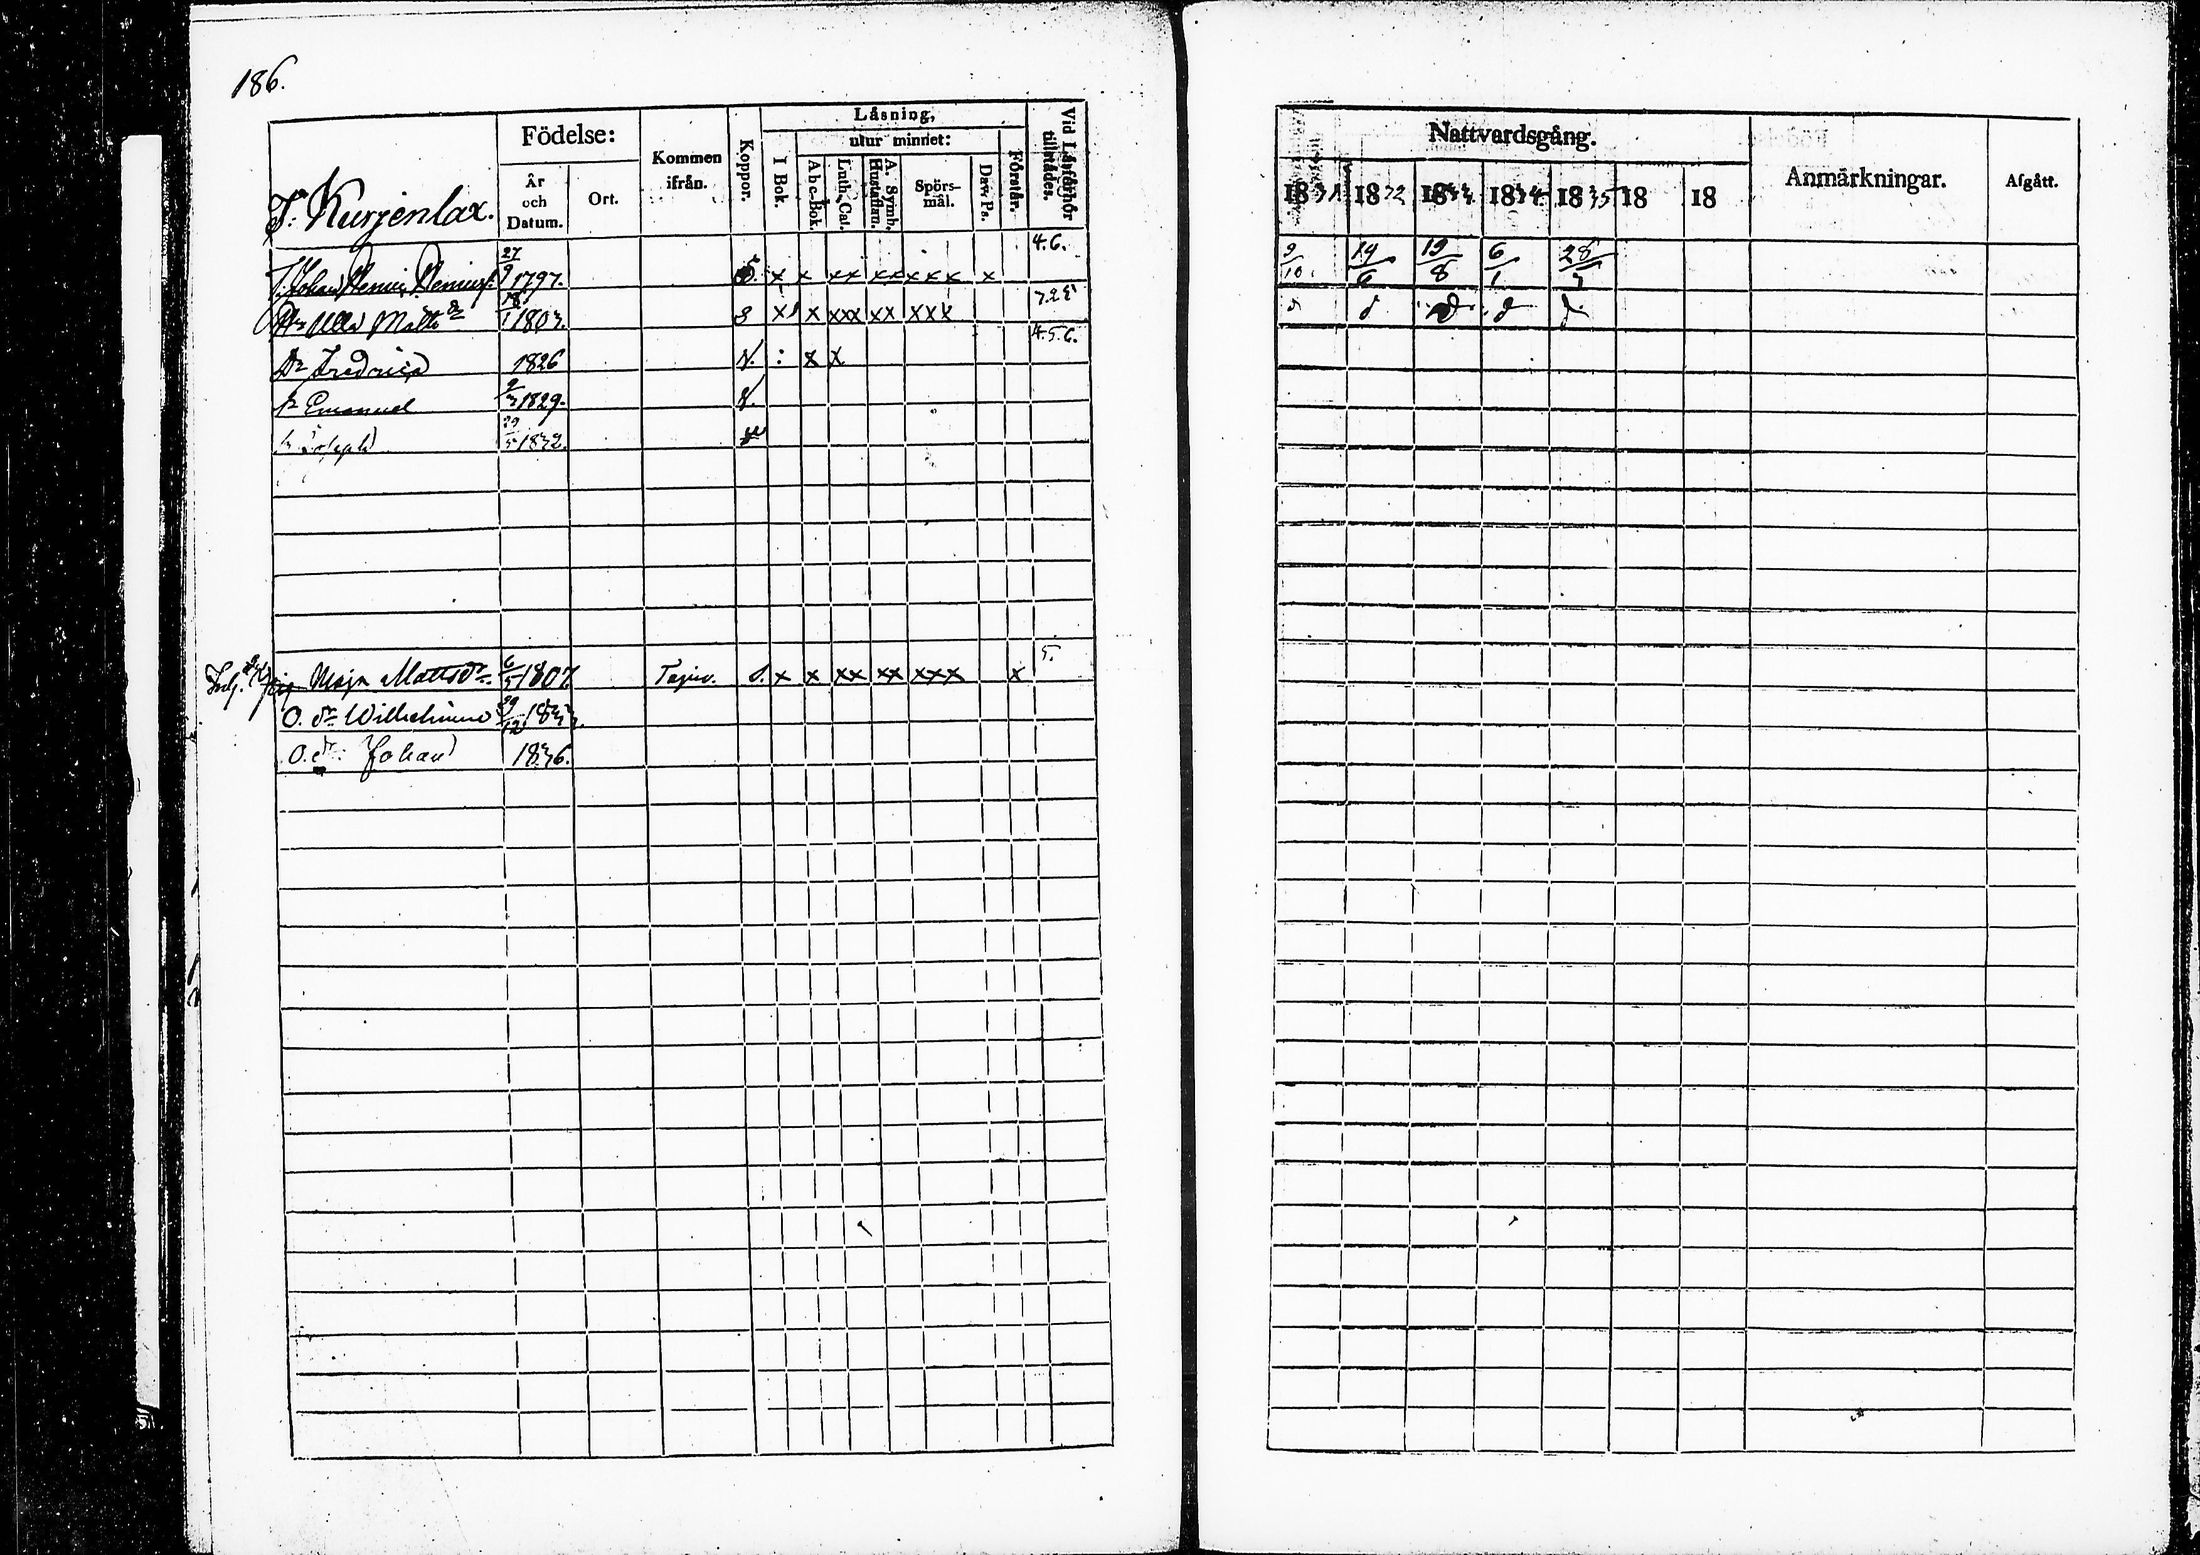 186.
T. Kurjenlax.
Födelse:
År och Datum.
Ort.
Kommen ifrån.
Koppor.
Läsning,
I Bok.
utur minnet:
Abc-Bok.
Luth. Cat.
A. Symb. Hustaflan.
Spörs-mål.
Dav. Ps.
Förstår.
Vid Läsförhör tillstädes.
T. Johan 27/9 1797. x x xx xx xxx x 4.6.
Hu Ulla Matts dr 18/1 1803. S x x xxx xx xxx
Dr Fredrica 1826 V. : x x 4.5.6.
Sn Emanuel 1829. V.
Joseph 1832.
Maja Mattsdr. 6/5 1807. x x xx xx xxx x 5.
O. dr Wilhelmina 29/12 1833.
O. Johan 1836.
Nattvardsgång.
1831 1832 1833 1834 1835 18 18
Anmärkningar.
Afgått.
9/10. 19/6 19/8 6/1 28/7
d d d d d